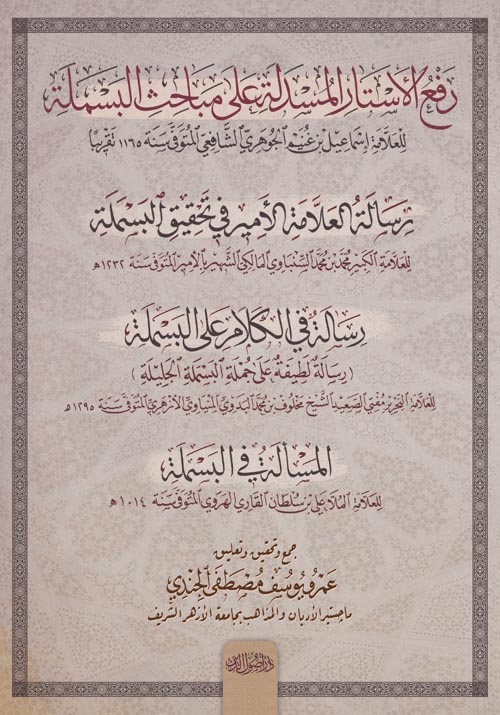 رفع الأستار المسدلة على مباحث البسملة
للعلامة إسماعيل بن غنيم الجوهري الشافعي المتوفى سنة ١١٦٥ تقريبًا
رسالة العلامة الأمير في تحقيق البسملة
للعلامة الكبير محمد بن محمد السنباوي المالكي الشهير بالأمير المتوفى سنة ١٢٣٢هـ
رسالة في الكلام على البسملة
(رسالة لطيفة على جملة البسملة الجليلة)
للعلامة النحرير مفتي الصعيد الشيخ مخلوف بن محمد البدوي المنياوي الأزهري المتوفى سنة ١٢٩٥هـ
المسألة في البسملة
للعلامة الملا علي بن سلطان القاري الهروي المتوفى سنة ١٠١٤هـ
جمع وتحقيق وتعليق
عمرو يوسف مصطفى الجندي
ماجستير الأديان والمذاهب بجامعة الأزهر الشريف
دار أصول الدين